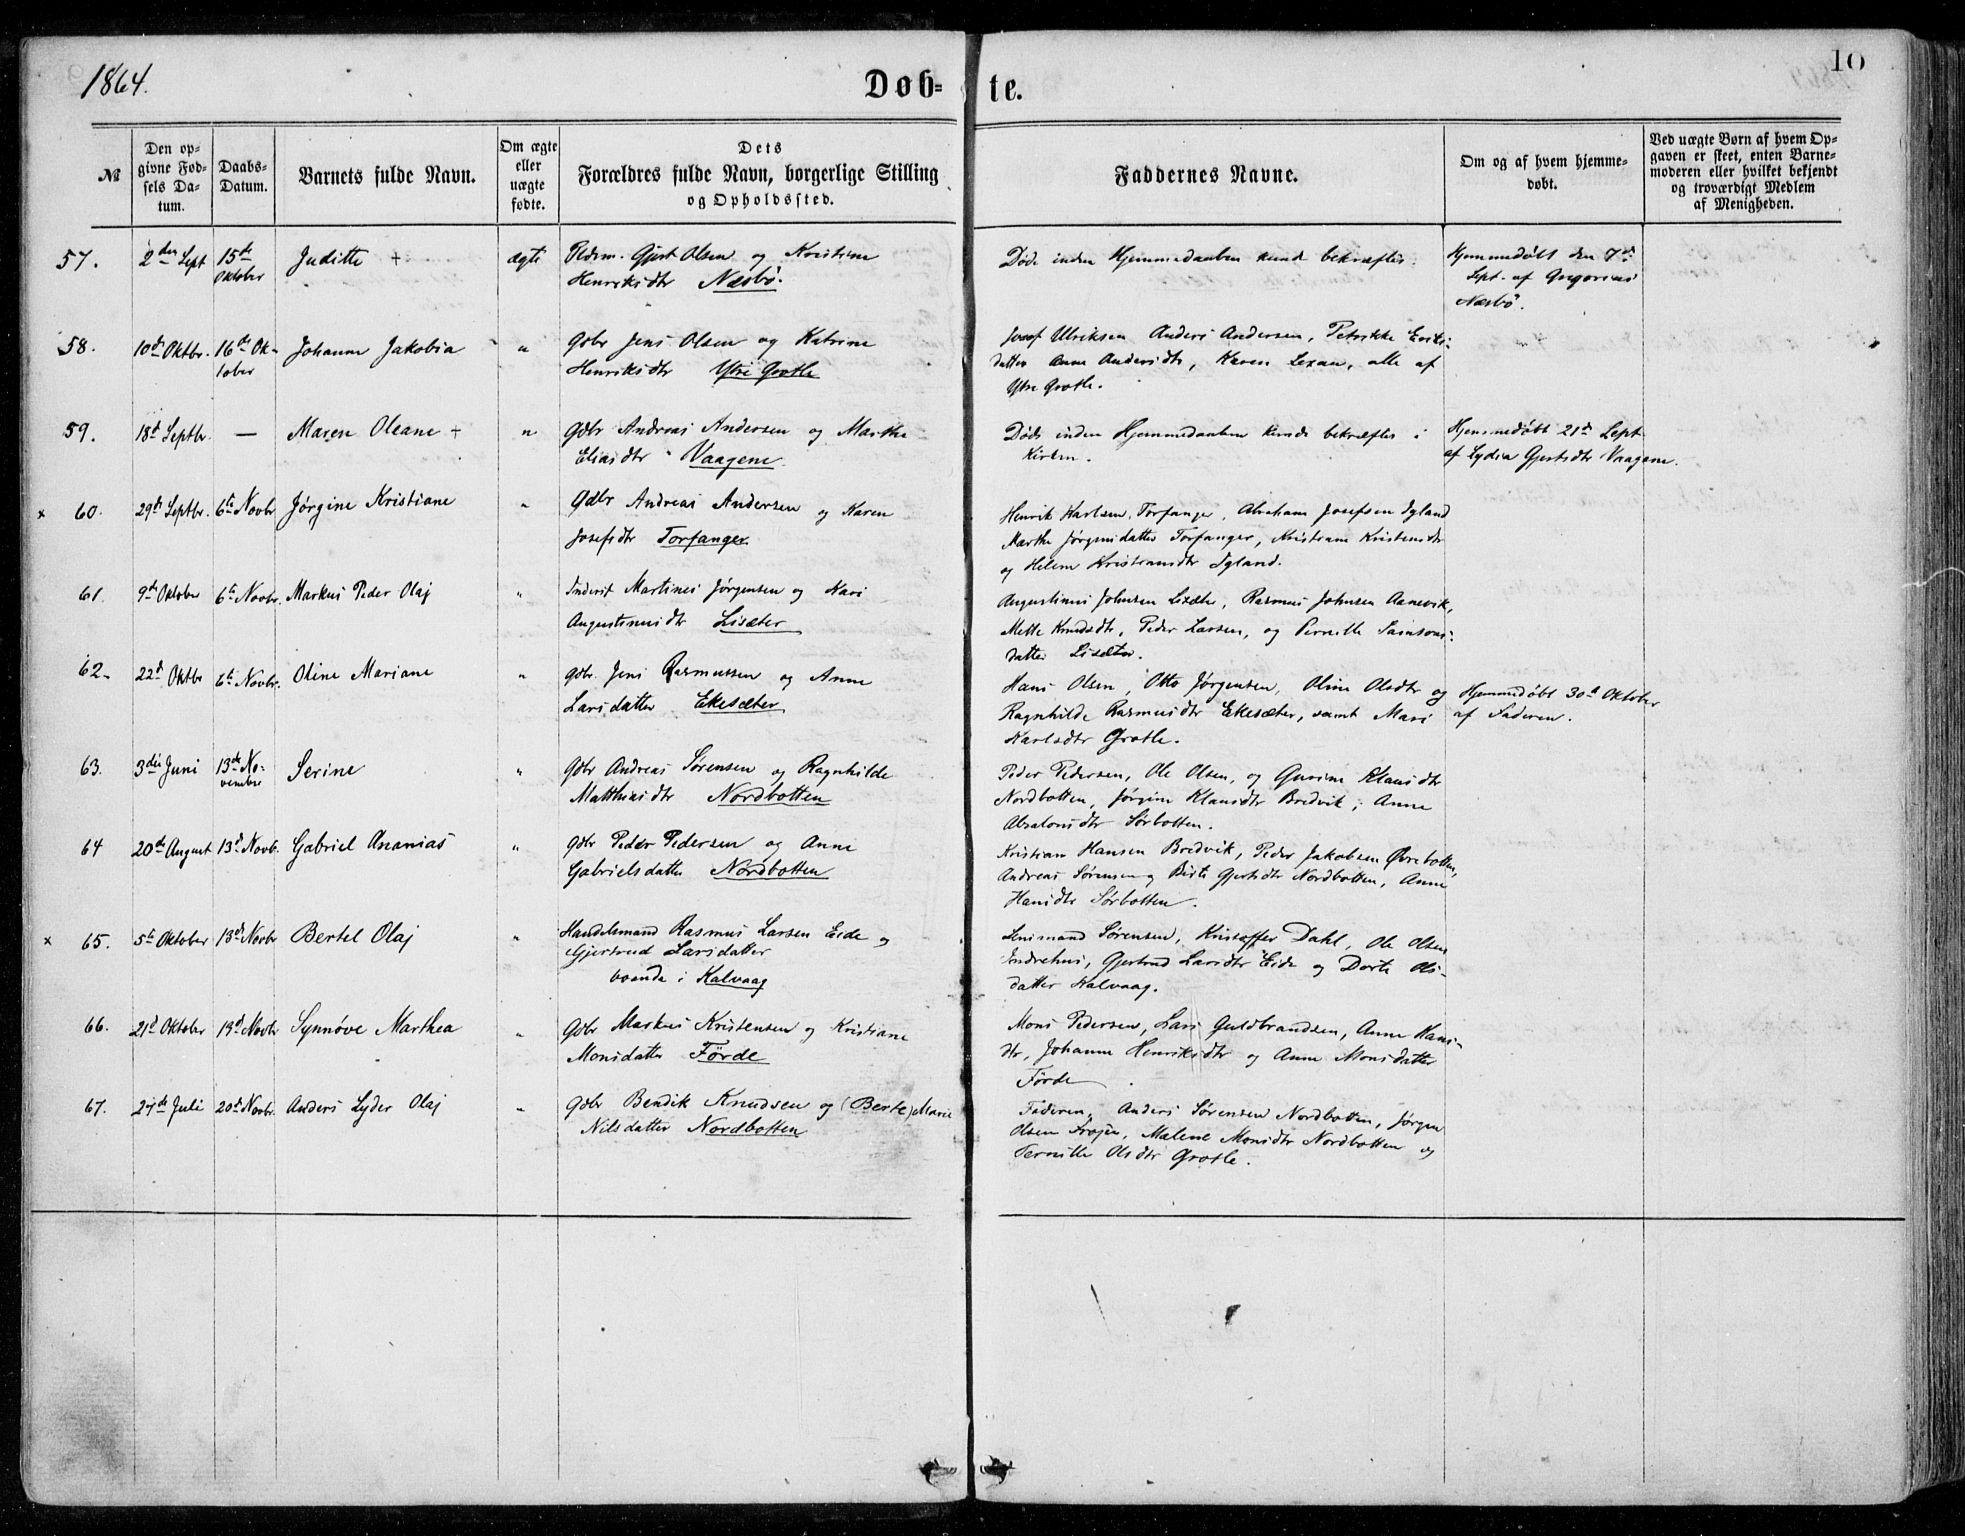 1864.
Døb- te.
10
№
Den opgivne Fødsels Datum.
Daabs-Datum.
Barnets fulde Navn.
Om ægte eller uægte fødte.
Dets Forældres fulde Navn, borgerlige Stilling og Opholdssted.
Faddernes Navne.
Om og af hvem hjemmedøbt.
Ved uægte Børn af hvem Opgaven er skeet, enten Barnemoderen eller hvilket bekjendt og troværdigt Medlem af Menigheden.
57. 2den Sept 15de Oktober Juditte + ægte
Gjert Olsen og Kristine
Henriksdtr Næsbø.
Døde inden Hjemmedaaben kunde bekræftes.
Hjemmedøbt den 7de
Sept. af
Næsbø.
58. 10de Oktbr. 16de Oktober Johanne Jakobia "
Gdbr Jens Olsen og Katrine
Henriksdtr Ytre Grotle
Josef Ulriksen Anders Andersen, Petrikke Eriks-
datter Anne Andersdtr, Karen Lexau, alle af
Ytre Grotle.
59. 18d Septbr. — Maren Oleane + "
Gdbr Andreas Andersen og Marthe
Eliasdtr Vaagene.
Døde inden Hjemmedaaben kunde bekræftes i
Kirken.
Hjemmedøbt 21de Sept
af Lydia Gjertsdtr Vaagene.
x 60. 29de Septbr. 6te Novbr Jørgine Kristiane "
Gdbr Andreas Andersen og Karen
Josefsdtr Torfanger
Henrik Karlsen Torfanger, Abraham Josefsen Igland
Marthe Jørgensdatter Torfanger, Kristiane Kristensdtr
og Helene Kristiansdtr Igland.
61. 9de Oktober 6te Novbr. Markus Peder Olaj "
Inderst Martinus Jørgensen og Kari
Augustinusdtr Lisæter
Augustinus Johnsen Lisæter, Rasmus Johnsen Aanevik,
Mette Knudsdtr, Peder Larsen, og Pernille Samsons-
datter Lisæter.
62. 22d Oktbr 6te Novbr. Oline Mariane "
Gdbr. Jens Rasmussen og Anne
Larsdatter Ekesæter
Hans Olsen, Otto Jørgensen, Oline Olsdtr og
Ragnhilde Rasmusdtr Ekesæter, samt Mari
Karlsdtr Grotle.
Hjemmedøbt 30d Oktober
af Faderen.
63. 3die Juni 13de November Serine "
Gdbr Andreas Sørensen og Ragnhilde
Matthiasdtr Nordbotten
Peder Pedersen, Ole Olsen, og Gurine Klausdtr
Nordbotten, Jørgine Klausdtr Bredvik, Anne
Absalonsdtr Sørbotten.
64 20de August 13d Novb. Gabriel Ananias "
Gdbr Peder Pedersen og Anne
Gabrielsdatter Nordbotten
Kristian Hansen Bredvik, Peder Jakobsen Øvrebotten,
Andreas Sørensen og Birte Gjertsdtr Nordbotten, Anne
Hansdtr Sørbotten.
x 65. 5te Oktober 13d Novbr Bertel Olaj "
Handelsmand Rasmus Larsen Eide og
Gjertrud Larsdatter
boende i Kalvaag
Lensmand Sørensen, Kristoffer Dahl, Ole Olsen
Indrehus, Gjertrud Larsdtr Eide og Dorte Ols-
datter Kalvaag.
66. 21d Oktober 13d Novbr Synnøve Marthea "
Gdbr Markus Kristensen og Kristiane
Monsdatter Förde
Mons Pedersen, Lars Guldbrandsen, Anne Hans-
dtr, Johanne Henriksdtr og Anne Monsdatter
Förde.
67. 27de Juli 20d Novbr. Anders Lyder Olaj "
Gdbr Bendik Knudsen og (Berte) Marie
Nilsdatter Nordbotten
Faderen, Anders Sørensen Nordbotten, Jørgen
Olsen Frøjen, Malene Monsdtr Nordbotten og
Pernille Olsdtr Grotle.